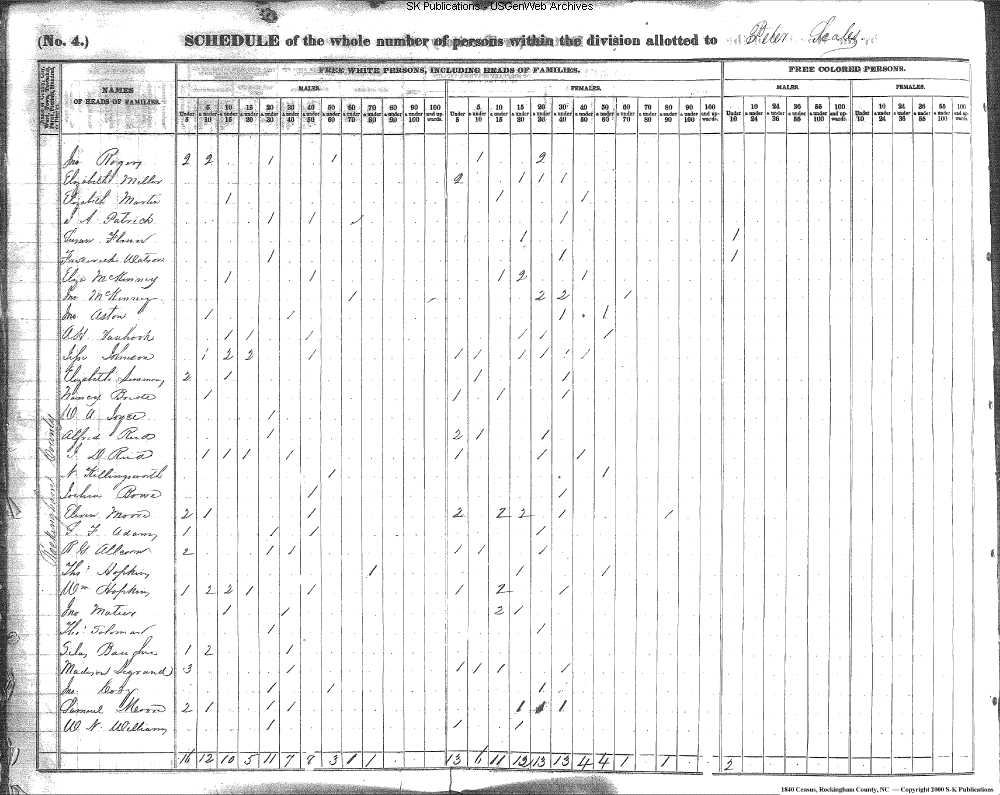 SK Publications - USGenWeb Archives
(No. 4.) SCHEDULE of the whole number of persons within the division allotted to Peter Scales
FREE WHITE PERSONS, INCLUDING HEADS OF FAMILIES. FREE COLORED PERSONS.
NAMES OF HEADS OF FAMILIES. MALES. FEMALES. MALES. FEMALES.
Under 5 5 & under 10 10 & under 15 15 & under 20 20 & under 30 30 & under 40 40 & under 50 50 & under 60 60 & under 70 70 & under 80 80 & under 90 90 & under 100 100 and upwards. Under 5 5 & under 10 10 & under 15 15 & under 20 20 & under 30 30 & under 40 40 & under 50 50 & under 60 60 & under 70 70 & under 80 80 & under 90 90 & under 100 100 and upwards. Under 10 10 & under 24 24 & under 36 36 & under 55 55 & under 100 100 and upwards. Under 10 10 & under 24 24 & under 36 36 & under 55 55 & under 100 100 and upwards.
Jno Rogers 2 2 1 1 1 2
Elizabeth Miller 2 1 1 1
Elizabeth Martin 1 1 1
A Patrick 1 1 1 1
Susan 1 1
Watson 1 1 1
Eliza McKinney 1 1 1 2 1
Jno McKinney 1 2 2 1
Jno Aston 1 1 1 1
AH Vanhook 1 1 1 1 1 1
Johnson 1 2 2 1 1 1 1 1 1 1
Elizabeth Simmons 2 1 1 1
Nancy Bride 1 1 1 1
W A Joyce 1
Alfred Reid 1 2 1 1
D Reid 1 1 1 1 1 1 1
N Killingsworth 1 1
Joshua Bowe 1 1
Moore 2 1 1 2 2 2 1 1
F Adams 1 1 1 1
R G Allcorn 2 1 1 1 1 1
Thos Hopkins 1 1 1
Wm Hopkins 1 2 2 1 1 1 2 1
Jno 1 1 2 1
Thos 1 1
Silas 1 2 1
Madison Legrand 3 1 1 1 1 1
Jno 1 1 1
Samuel Moore 2 1 1 1 1 1 1
W N Williams 1 1 1
16 12 10 5 11 7 8 3 1 1 13 6 11 12 13 13 4 4 1 1 2
Rockingham County
1840 Census, Rockingham County, NC — Copyright 2000 S-K Publications